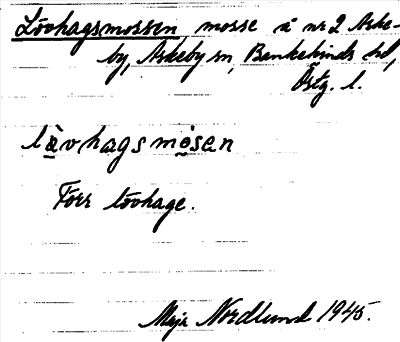 Lövhagsmossen, mosse å nr 2 Aske-
by, Askeby sn, Bankekinds hd,
Östg. l.
lö̀vhagsmòsen
Förr lövhage.
Maja Nordlund 1945.